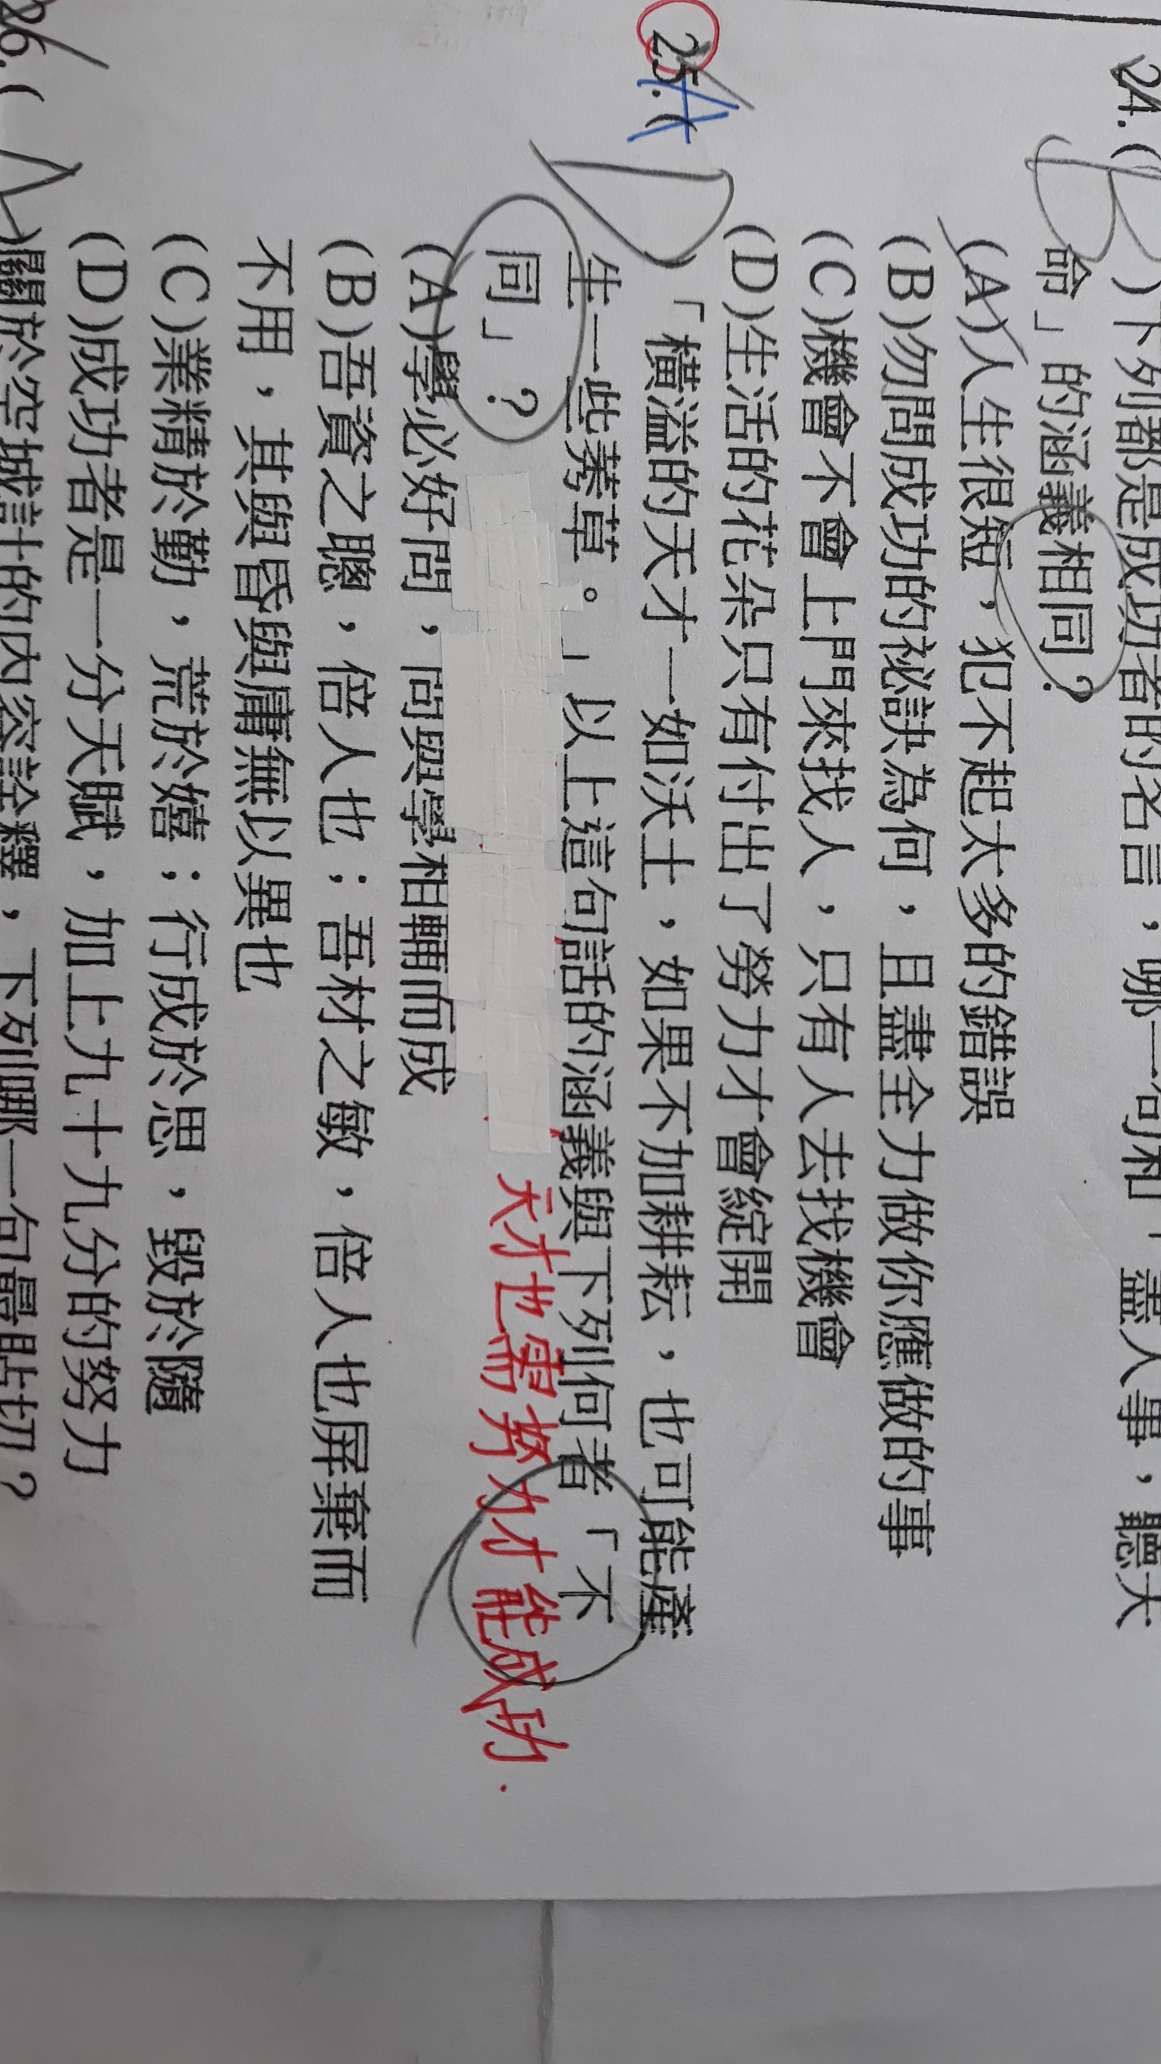 24.(B)下列都是成功者的名言，哪一句和「盡人事，聽天
命」的涵義相同？
(A)人生很短，犯不起太多的錯誤
(B)勿問成功的祕訣為何，且盡全力做你應做的事
(C)機會不會上門來找人，只有人去找機會
(D)生活的花朵只有付出了勞力才會綻開
25.(D)「橫溢的天才一如沃土，如果不加耕耘，也可能產
A
生一些莠草。」以上這句話的涵義與下列何者「不
同」？
天才也需努力才能成功.
(A)學必好問，問與學相輔而成
(B)吾資之聰，倍人也；吾材之敏，倍人也屏棄而
不用，其與昏與庸無以異也
(C)業精於勤，荒於嬉；行成於思，毀於隨
(D)成功者是一分天賦，加上九十九分的努力
26.(A)關於空城計的內容詮釋，下列哪一句最貼切？